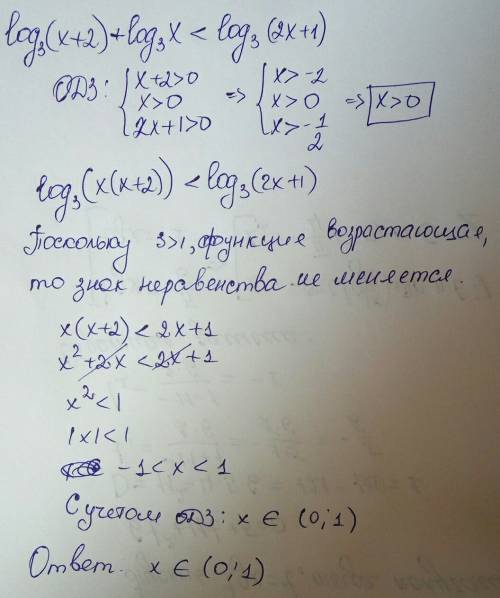 log₃(x+2)+log₃x < log₃(2x+1)
ОДЗ: { x+2>0 => { x>-2
x>0 x>0 => x>0
2x+1>0 x>-1/2
log₃(x(x+2)) < log₃(2x+1)
Поскольку 3>1, функция возрастающая,
то знак неравенства не меняется.
x(x+2) < 2x+1
x²+2x < 2x+1
x² < 1
|x| < 1
-1 < x < 1
С учетом ОДЗ: x ∈ (0;1)
Ответ. x ∈ (0;1)